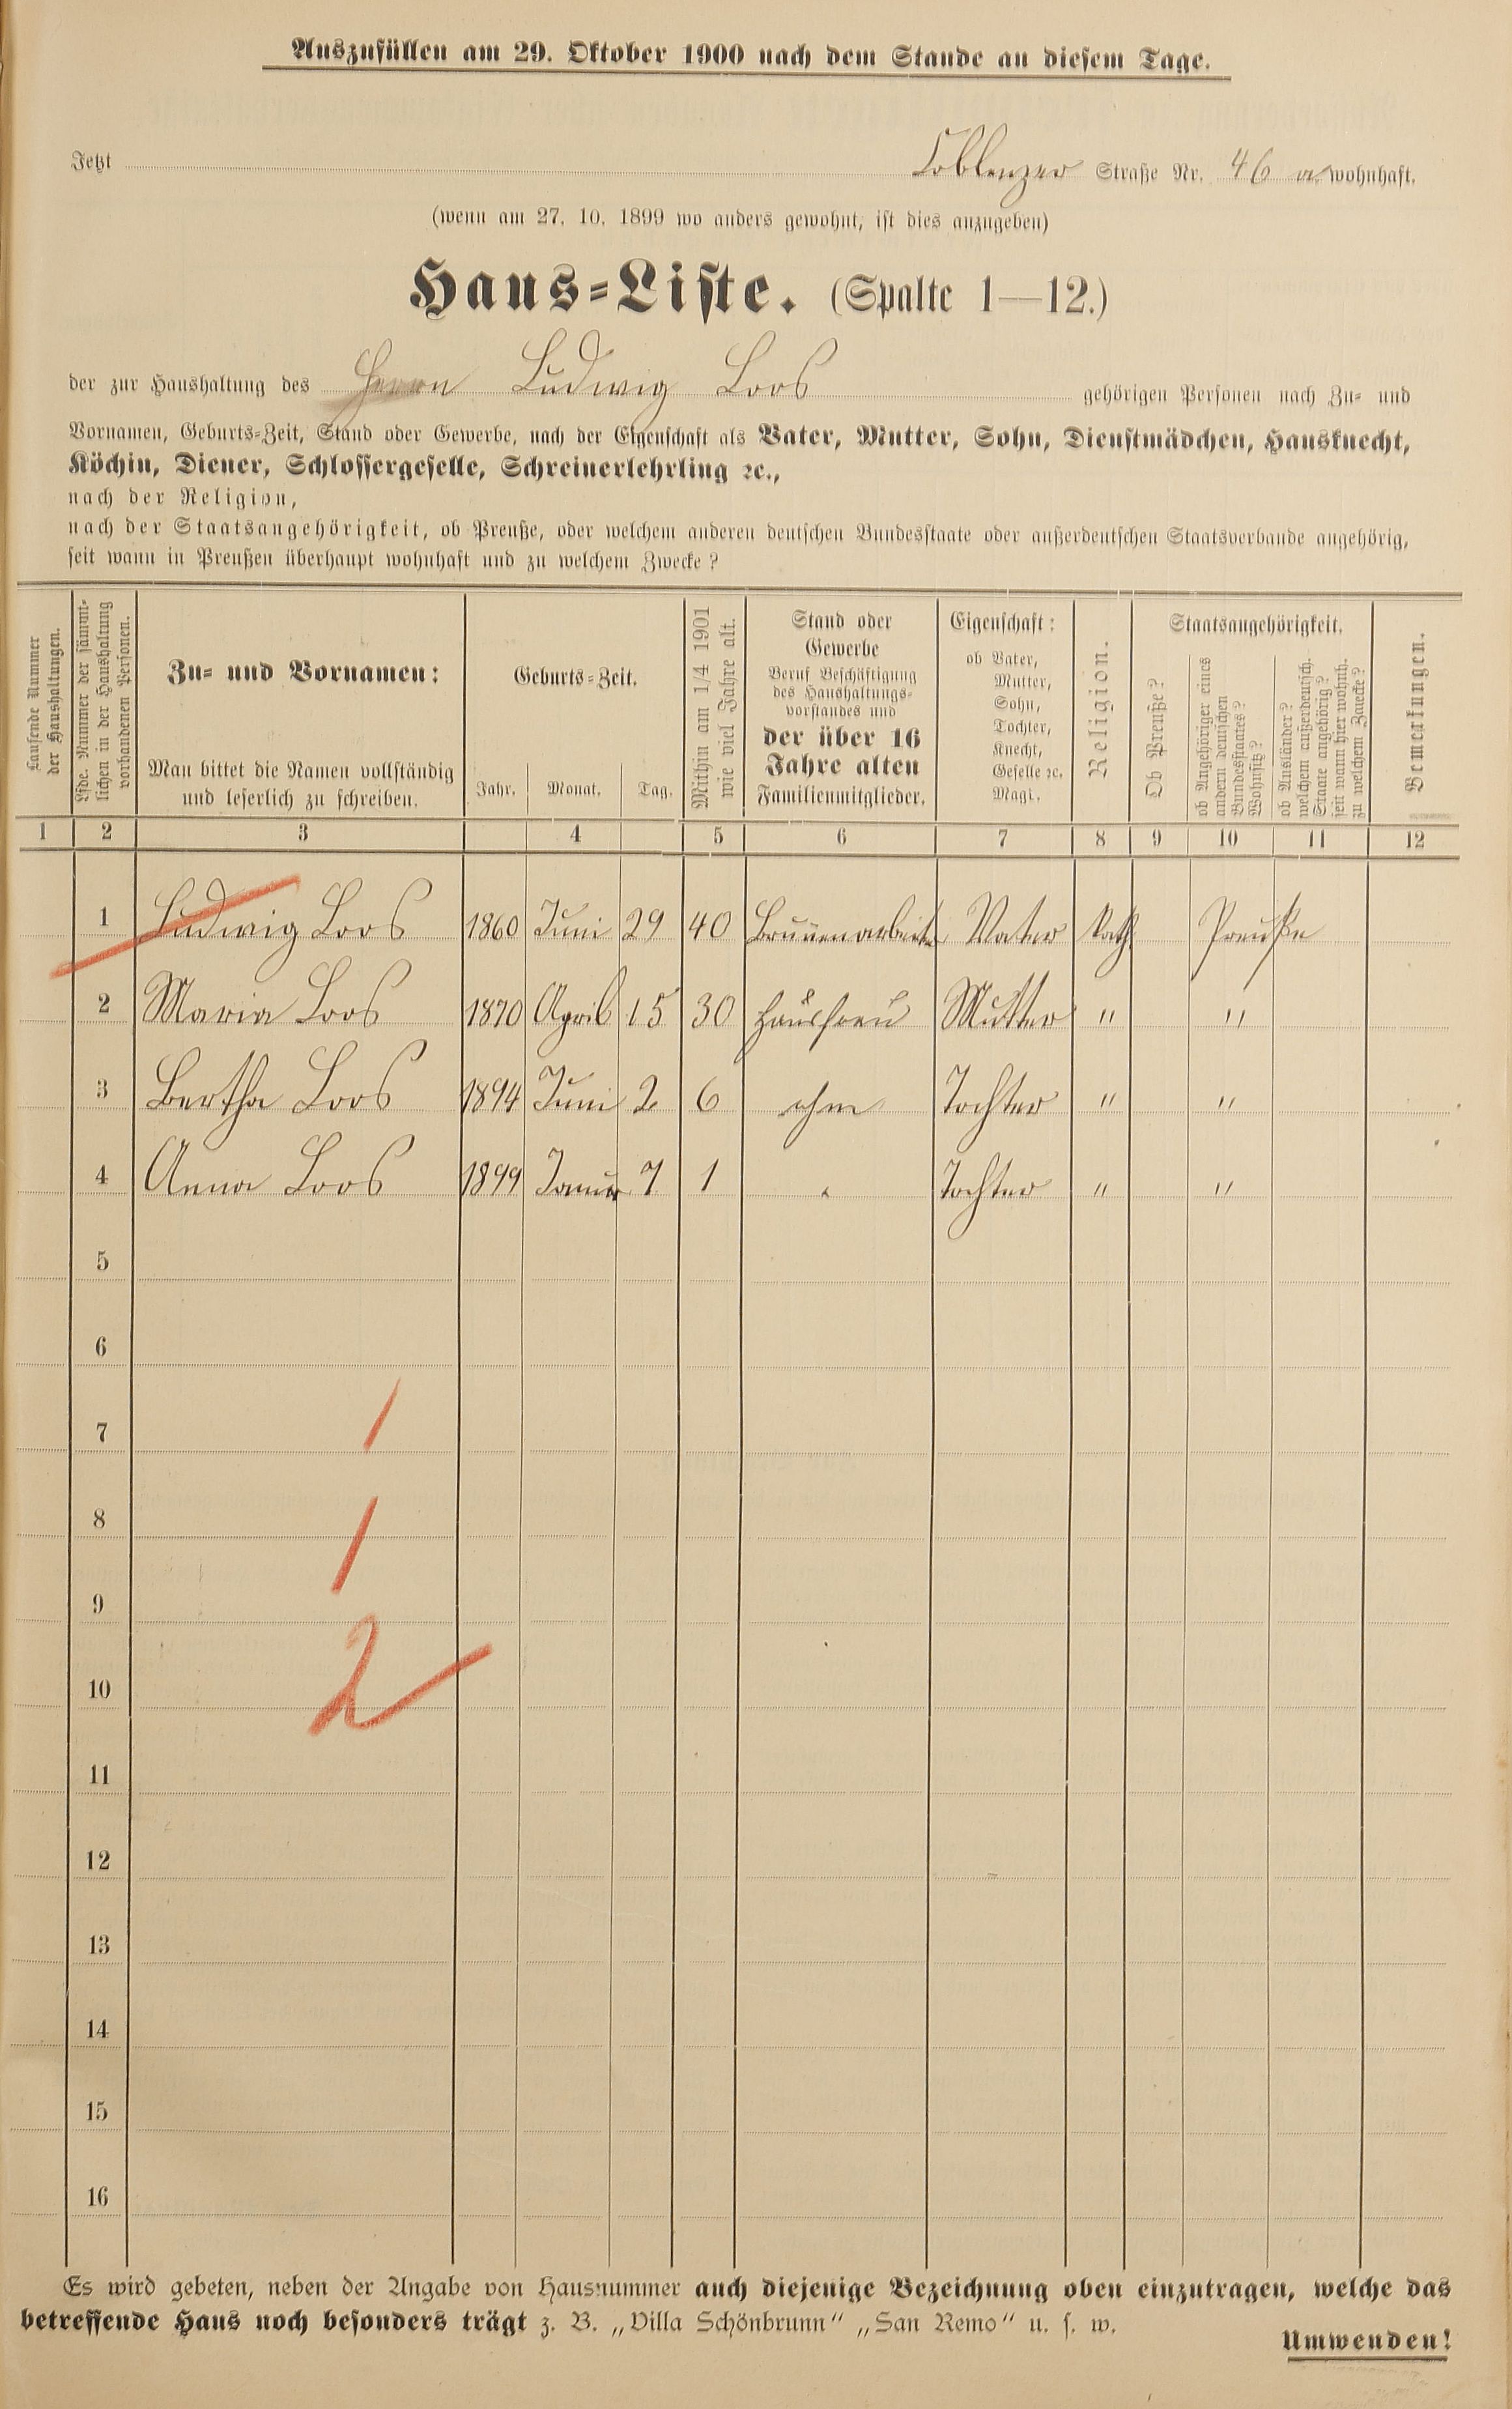 Auszufüllen am 29. Oktober 1900 nach dem Stande an diesem Tage.
Jetzt Coblenzer Straße Nr. 46 a wohnhaft.
(wenn am 27. 10. 1899 wo anders gewohnt, ist dies anzugeben)
Haus-Liste. (Spalte 1—12.)
der zur Haushaltung des Herrn Ludwig Loos gehörigen Personen nach Zu- und
Vornamen, Geburts-Zeit, Stand oder Gewerbe, nach der Eigenschaft als Vater, Mutter, Sohn, Dienstmädchen, Hausknecht,
Köchin, Diener, Schlossergeselle, Schreinerlehrling ꝛc.,
nach der Religion,
nach der Staatsangehörigkeit, ob Preuße, oder welchem anderen deutschen Bundesstaate oder außerdeutschen Staatsverbande angehörig,
seit wann in Preußen überhaupt wohnhaft und zu welchem Zwecke?
Laufende Nummer
der Haushaltungen.
Lfde. Nummer der sämmt-
lichen in der Haushaltung
vorhandenen Personen.
Zu- und Vornamen:
Man bittet die Namen vollständig
und leserlich zu schreiben.
Geburts-Zeit.
Jahr. Monat. Tag.
Mithin am 1/4 1901
wie viel Jahre alt.
Stand oder
Gewerbe
Beruf Beschäftigung
des Haushaltungs-
vorstandes und
der über 16
Jahre alten
Familienmitglieder.
Eigenschaft:
ob Vater,
Mutter,
Sohn,
Tochter,
Knecht,
Geselle ꝛc.
Magd.
Religion.
Staatsangehörigkeit.
Ob Preuße?
ob Angehöriger eines
andern deutschen
Bundesstaates?
Wohnsitz?
ob Ausländer?
welchem außerdeutsch.
Staate angehörig?
seit wann hier wohnh.
zu welchem Zwecke?
Bemerkungen.
1 2 3 4 5 6 7 8 9 10 11 12
1 Ludwig Loos 1860 Juni 29 40 Brunnenarbeiter Vater Kath Preuße
2 Maria Loos 1870 April 15 30 Hausfrau Mutter " "
3 Bertha Loos 1894 Juni 2 6 ohne Tochter " "
4 Anna Loos 1899 Januar 7 1 " Tochter " "
5
6
7 1
8 1
9
10 2
11
12
13
14
15
16
Es wird gebeten, neben der Angabe von Hausnummer auch diejenige Bezeichnung oben einzutragen, welche das
betreffende Haus noch besonders trägt z. B. „Villa Schönbrunn“ „San Remo“ u. s. w.
Umwenden!